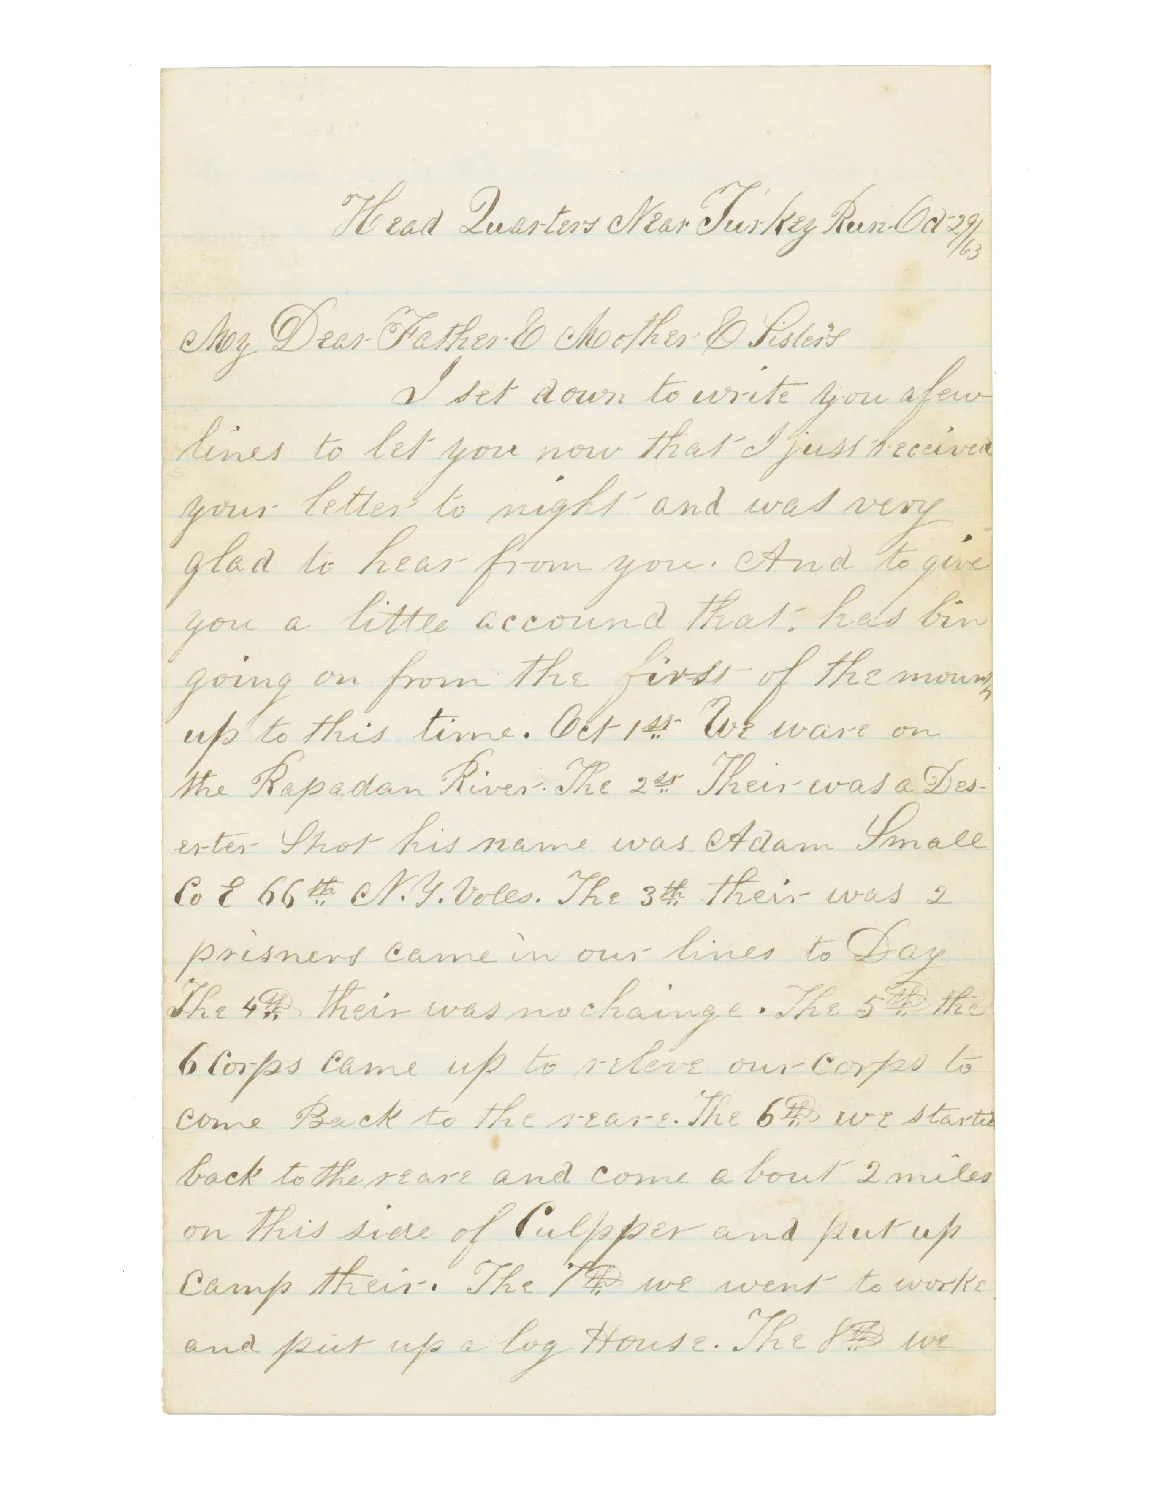 Head Quarters Near Turkey Run. Oct 29/63
My Dear Father & Mother & Sisters
I set down to write you a few
lines to let you now that I just received
your letter to night and was very
glad to hear from you. And to give
you a little accound that. has bin
going on from the first of the mounth
up to this time. Oct 1st We ware on
the Rapadan River. The 2st Their was a Des-
erter Shot his name was Adam Small
Co E 66th N.Y. Voles. The 3th their was 2
prisners came in our lines to Day
The 4th their was no chainge. The 5th the
6 Corps came up to releve our corps to
come Back to the reare. The 6th we started
back to the reare and come about 2 miles
on this side of Culpper and put up
camp their. The 7th we went to worke
and put up a log House. The 8th we